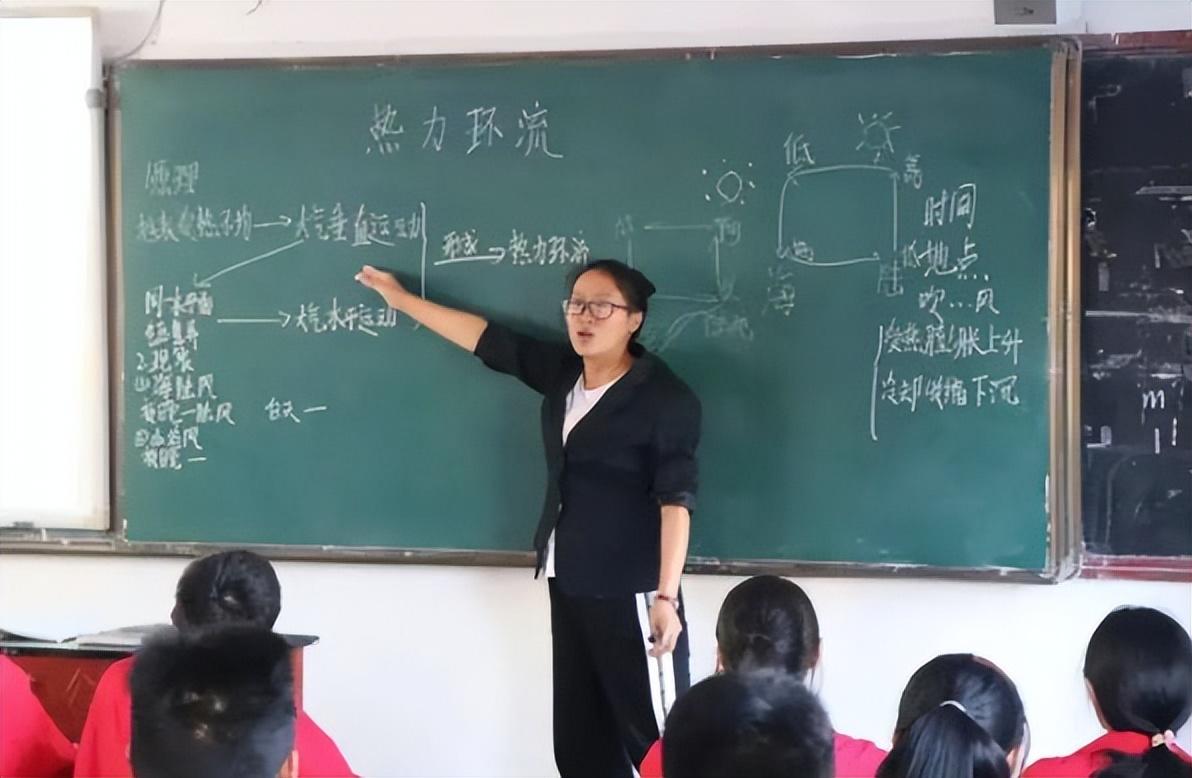 热力环流
原理
地表受热不均 大气垂直运动
形成 热力环流
同一水平面
气压差异 大气水平运动
2.现象
①海陆风
夜晚—陆风 白天—
②山谷风
夜晚—
低 高
海 陆 低
时间
地点
吹…风
受热膨胀上升
冷却收缩下沉
m